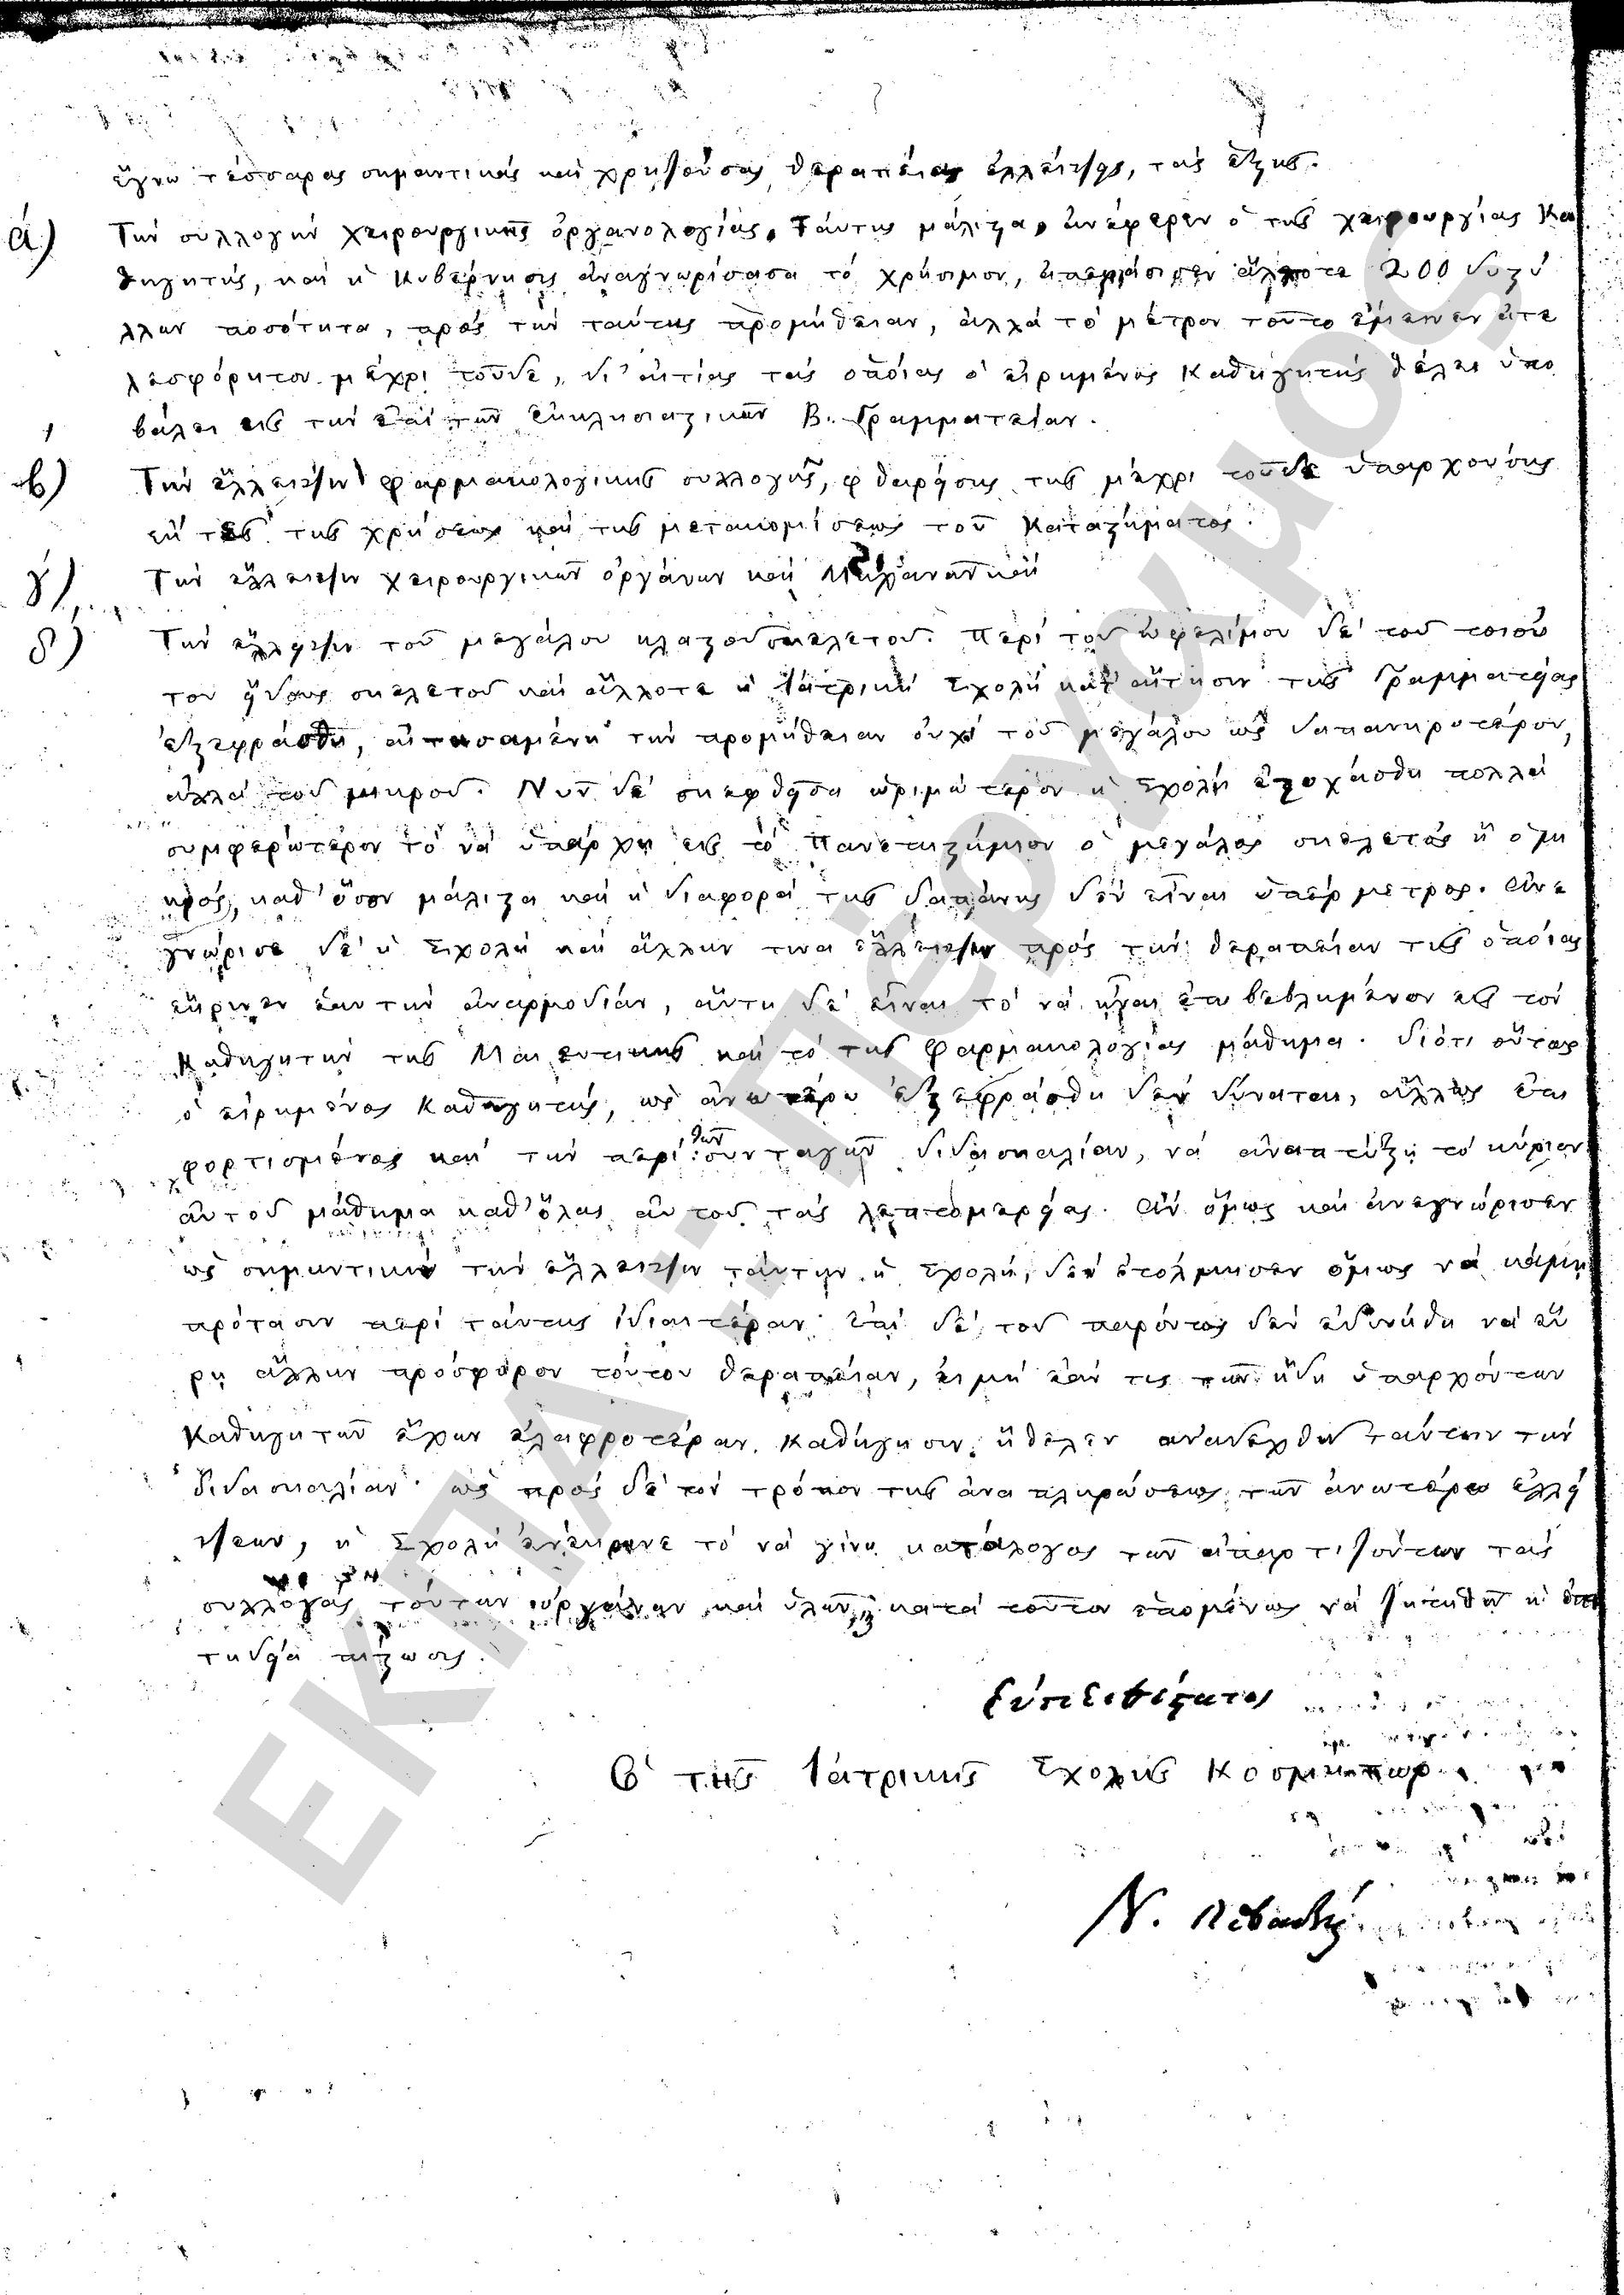 ἔγνω τέσσαρας σημαντικάς καί χρηζούσας θεραπείας ἐλλείψεις, τάς ἑξῆς.
ά) Τήν συλλογήν χειρουργικῆς ὀργανολογίας. Ταύτης μάλιστα ἀνέφερεν ὁ τῆς χειρουργίας Κα
θηγητής, καί ἡ Κυβέρνησις ἀναγνωρίσασα τό χρήσιμον, ἀπεφάσισεν ἄλλοτε 200 διςή
λλων ποσότητα, πρός τήν ταύτης προμήθειαν, ἀλλά τό μέτρον τοῦτο ἔμεινεν ἀτε
λεσφόρητον μέχρι τοῦδε, δι' αἰτίας τάς ὁποίας ὁ εἰρημένος Καθηγητής θέλει ὑπο
βάλει εἰς τήν ἐπί τῶν ἐκκλησιαστικῶν Β. Γραμματείαν.
β) Τήν ἔλλειψιν φαρμακολογικῆς συλλογῆς, φθαρείσης τῆς μέχρι τοῦδε ὑπαρχούσης
ἐκ τῆς χρήσεως καί τῆς μετακομίσεως τοῦ Καταστήματος.
γ) Τήν ἔλλειψιν χειρουργικῶν ὀργάνων καί Μηχανῶν καί
δ) Τήν ἔλλειψιν τοῦ μεγάλου πλαστοῦ σκελετοῦ. Περί τοῦ ὠφελίμου δέ τοῦ τοιού
του εἴδους σκελετοῦ καί ἄλλοτε ἡ Ἰατρική Σχολή κατ' αἴτησιν τῆς Γραμματείας
ἐξεφράσθη, αἰτησαμένη τήν προμήθειαν οὐχί τοῦ μεγάλου ὡς δαπανηροτέρου,
ἀλλά τοῦ μικροῦ. Νῦν δέ σκεφθεῖσα ὡριμώτερον ἡ Σχολή ἐστοχάσθη πολλά
συμφερώτερον τό νά ὑπάρχῃ εἰς τό Πανεπιστήμιον ὁ μεγάλος σκελετός ἤ ὁ μι
κρός, καθ' ὅσον μάλιστα καί ἡ διαφορά τῆς δαπάνης δέν εἶναι ὑπέρμετρος. Ἀνε
γνώρισε δέ ἡ Σχολή καί ἄλλην τινα ἔλλειψιν πρός τήν θεραπείαν τῆς ὁποίας
ἔκρινεν ἑαυτήν ἀναρμοδίαν, αὕτη δέ εἶναι τό νά ᾖναι ἐπιβεβλημένον εἰς τόν
Καθηγητήν τῆς Μαιευτικῆς καί τό τῆς φαρμακολογίας μάθημα. διότι οὕτως
ὁ εἰρημένος Καθηγητής, ὡς ἀνωτέρω ἐξεφράσθη δέν δύναται, ἄλλως ἐπι
φορτισμένος καί τήν περί τῶν συνταγῶν διδασκαλίαν, νά ἀναπτύξῃ τό κύριον
αὐτοῦ μάθημα καθ' ὅλας αὐτοῦ τάς λεπτομερείας. Ἄν ὅμως καί ἀνεγνώρισεν
ὡς σημαντικήν τήν ἔλλειψιν ταύτην ἡ Σχολή, δέν ἐτόλμησεν ὅμως νά κάμῃ
πρότασιν περί ταύτης ἰδιαιτέραν. ἐπί δέ τοῦ παρόντος δέν ἐδυνήθη νά εὕ
ρῃ ἄλλην πρόσφορον τούτου θεραπείαν, εἰμή ἐάν τις τῶν ἤδη ὑπαρχόντων
Καθηγητῶν ἔχων ἐλαφροτέραν Καθήγησιν ἤθελεν ἀναδεχθῆ ταύτην τήν
διδασκαλίαν. ὡς πρός δέ τόν τρόπον τῆς ἀναπληρώσεως τῶν ἀνωτέρω ἐλλεί
ψεων, ἡ Σχολή ἐνέκρινε τό νά γίνῃ κατάλογος τῶν ἀπαρτιζόντων τάς
συλλογάς τούτων ὀργάνων καί ὑλῶν, κατά τοῦτον ἑπομένως νά ζητηθῇ ἡ ἐπι
τηδεία πίστωσις.
Εὐπειθέστατος
Ὁ τῆς Ἰατρικῆς Σχολῆς Κοσμήτωρ
Ν. Κωστῆς